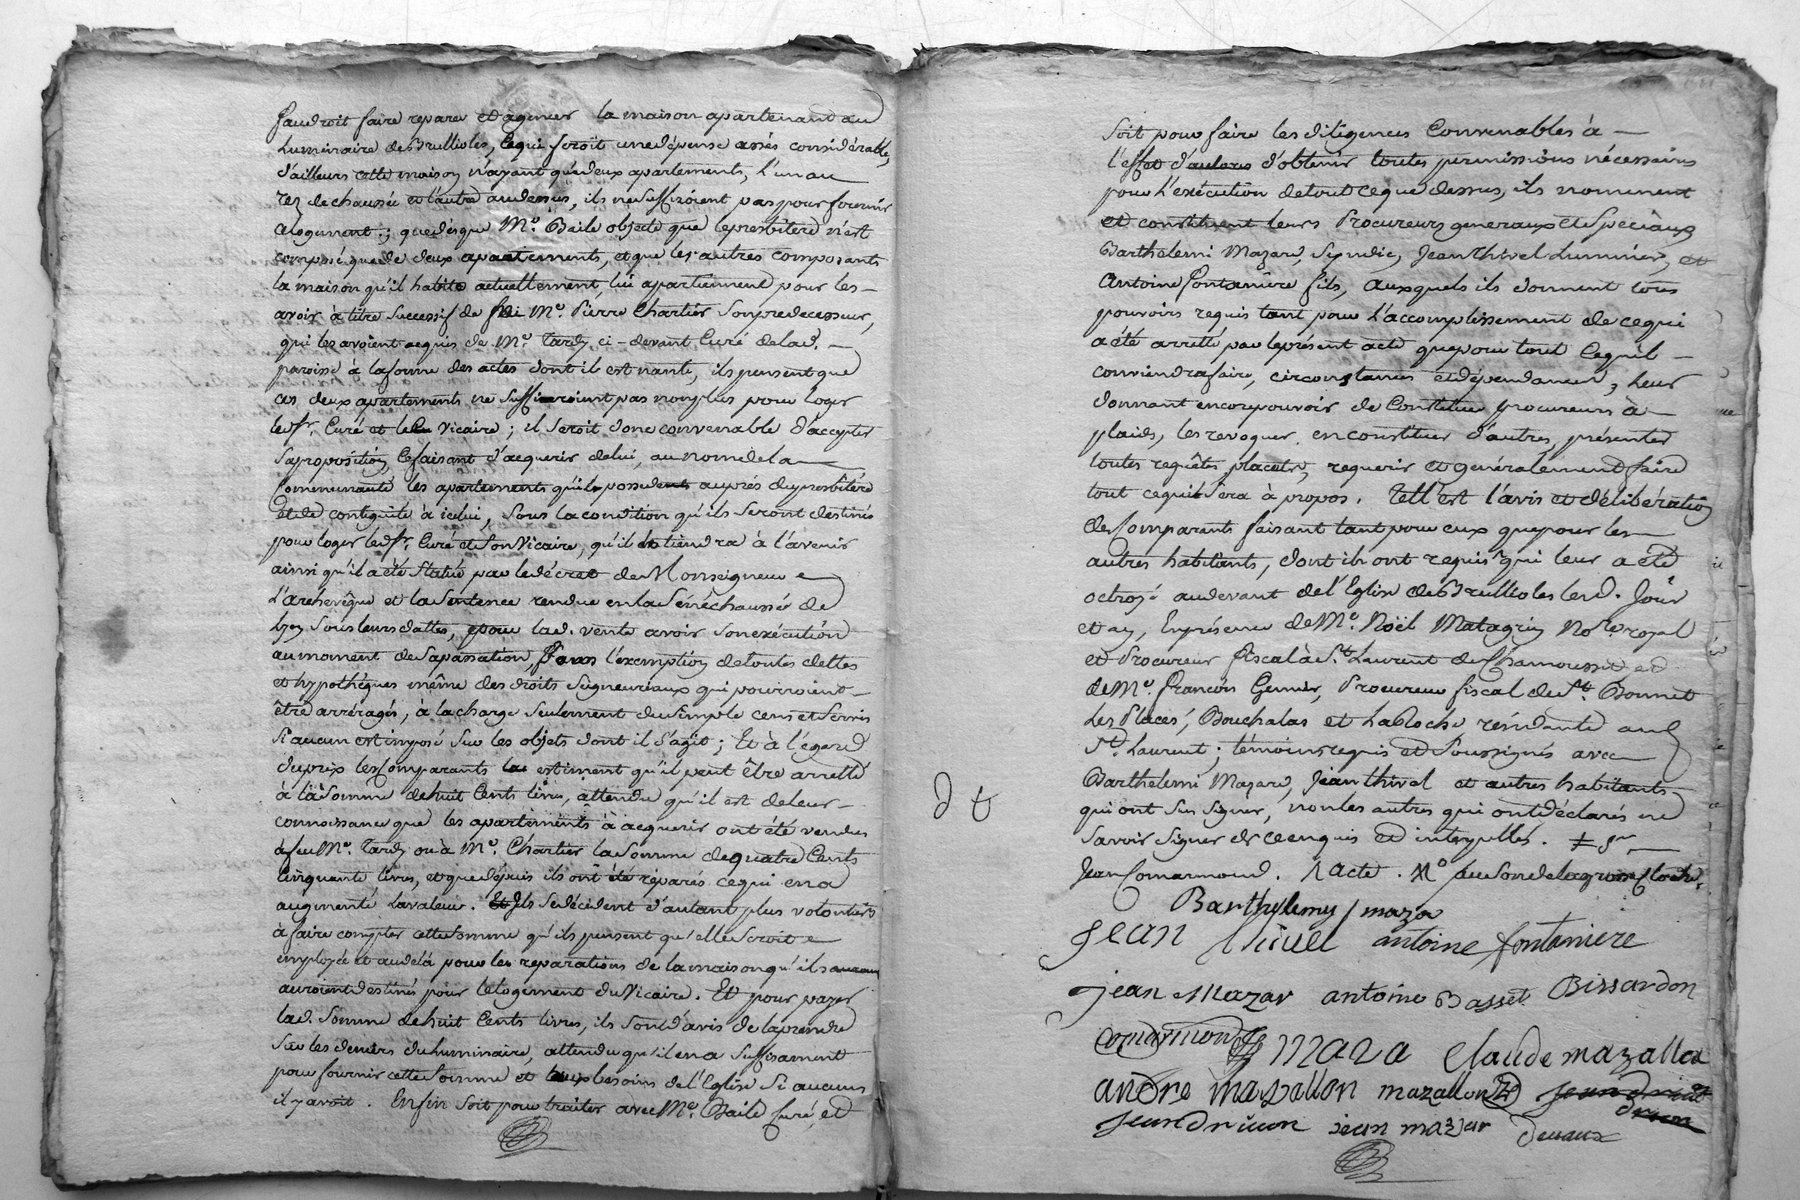 faudroit faire reparer et agencer la maison apartenant au
Luminaire de Brullioles, ce qui seroit une dépense assés considérable,
d'ailleurs cette maison n'ayant que deux apartements, l'un au
rez de chaussée et l'autre au dessus, ils ne suffiroient pas pour fournir
ce logement; que dès que Me. Baile objecte que le presbitère n'est
composé que de deux apartements, et que les autres composants
la maison qu'il habite actuellement, lui apartiennent pour les
avoir à titre successif de feu Me. Pierre Chartier son predecesseur,
qui les avoient acquis de Me. Tardy ci-devant Curé de lad.
paroisse à la forme des actes dont il est nanti, ils pensent que
ces deux apartements ne suffiroient pas non plus pour loger
led. sr. Curé et le Vicaire; il seroit donc convenable d'accepter
sa proposition, ce faisant d'acquerir de lui, au nom de la
Communauté les apartements qu'il possede auprés du presbitère
et de contiguité à icelui, sous la condition qu'ils seront destinés
pour loger led. sr. Curé et son Vicaire, qu'il tiendra à l'avenir
ainsi qu'il a été statué par le décret de Monseigneur
L'archevêque et la sentence rendue en la Sénéchaussée de
Lyon sous leurs dattes, pour lad. vente avoir son exécution
au moment de sa passation, sous l'exemption de toutes dettes
et hypothèques même des droits seigneuriaux qui pourroient
être arréragés, à la charge seulement du simple cens et servis
si aucun est imposé sur les objets dont il s'agit; Et à l'égard
du prix les Comparants estiment qu'il peut être arretté
à la somme de huit Cents livres, attendu qu'il est de leur
connoissance que les apartements à acquerir ont été vendus
à feu Me. Tardy ou à Me. Chartier la somme de quatre Cents
Cinquante livres, et que depuis ils ont été réparés ce qui en a
augmenté la valeur. Ils se décident d'autant plus volontiers
à faire compter cette somme qu'ils pensent qu'elle seroit
employée et au delà pour les reparations de la maison qu'ils
auroient destinés pour le logement du Vicaire. Et pour payer
lad. somme de huit Cents livres, ils sont d'avis de la prendre
sur les deniers du luminaire, attendu qu'il en a suffisament
pour fournir cette somme et aux besoins de l'Eglise si aucuns
il y avoit. Enfin soit pour traiter avec Me. Baile Curé, et
soit pour faire les diligences Convenables à
l'effet d'obtenir toutes permissions nécessaires
pour l'exécution de tout ce que dessus, ils nomment
et constituent leurs Procureurs generaux et Speciaux
Barthelemi Mazard, Syndic, Jean Thivel Luminier, et
Antoine Fontaniere fils, auxquels ils donnent tous
pouvoirs requis tant pour l'accomplissement de ce qui
a été arretté par le présent acte que pour tout ce qu'il
conviendra faire, circonstances et dépendances, leur
donnant encore pouvoir de Constituer procureurs à
plaids, les revoquer, en constituer d'autres, présenter
toutes requêtes, placets, requerir et généralement faire
tout ce qui sera à propos. Tell est l'avis et délibération
des Comparants faisant tant pour eux que pour les
autres habitants, dont ils ont requis qui leur a été
octroyé au devant de l'Eglise de Brullioles lesd. Jour
et an, En présence de Me. Noël Matagrin Nore. royal
et Procureur fiscal à St. Laurent de Chamousset et
de Me. François Genier, Procureur fiscal de St. Bonnet
Les Places, Bouchalas et Laroche résidants aud.
St. Laurent; témoins requis et soussignés avec
Barthelemi Mazard, Jean Thivel et autres habitants
qui ont su signer, non les autres qui ont déclarés ne
savoir signer de ce enquis et interpellés. ‡ sr.
Jean Comarmond. 1 acte. au son de la grosse Cloche.
Barthelemy mazar
jean thivel antoine fontaniere
jean mazar antoine Basset Bissardon
Comarmond mazar Claude mazallon
andre mazallon mazallon
jean drivon jean mazar devaux